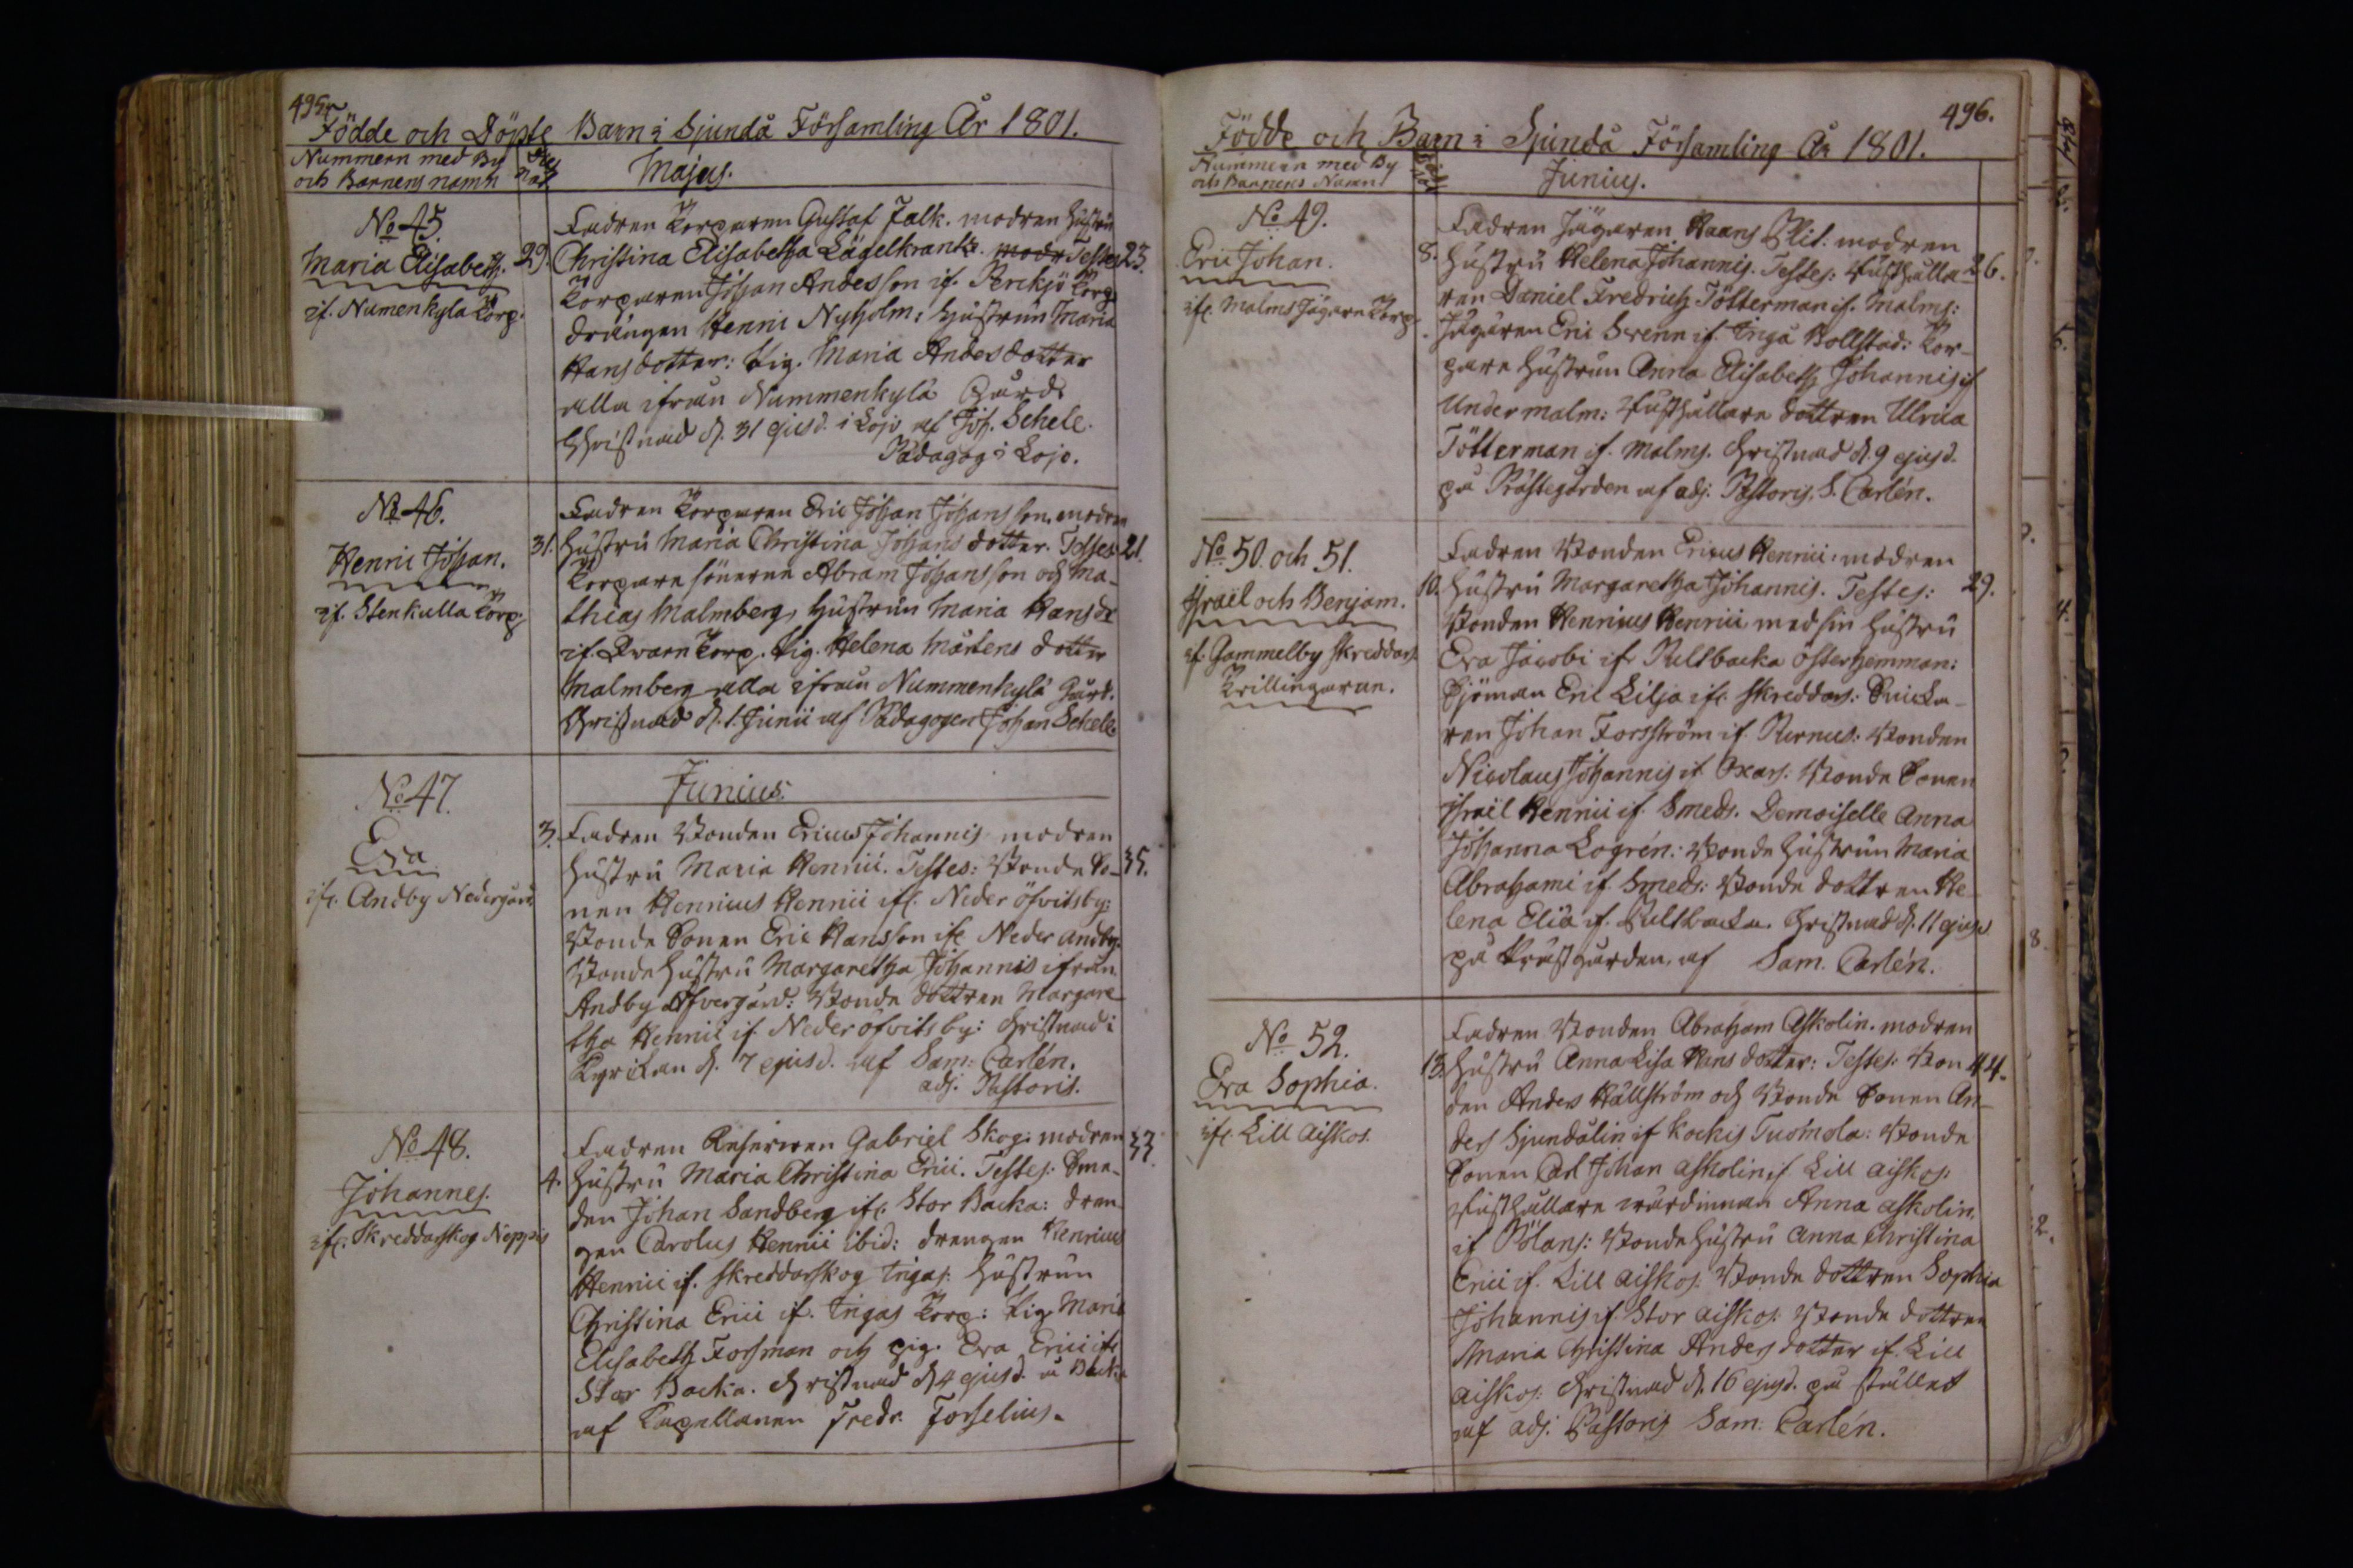 495.
Födde och Döpte Barn i Sjundå Församling År 1801.
Nummern med By
och Barnens namn
Majus.
No 45.
Maria Elisabeth.
if. Numenkyla Torp.
29.
Fadren Torparen Gustaf Falk. modren hustru
Christina Elisabetha Lägelkrantz. modr Testes 23.
Torparen Johan Andersson if. Torp
drängen Henric Nyholm: hustrun Maria
Hansdotter: Pig. Maria Andersdotter
alla ifrån Nummenkylä Gård.
Christnad d. 31 ejusd. i Lojo af Joh. Schele.
Pädagog i Lojo.
No 46.
Henric Johan.
if. Stenkulla Torp.
31.
Fadren Torparen Eric Johan Johansson, modren
hustru Maria Christina Johansdotter. Testes 21.
Torpare sönerne Abram Johansson och Ma-
thias Malmberg, hustrun Maria Hansdr
if. Qvarn Torp. Pig. Helena Mårtens dotter
Malmberg alla ifrån Nummenkylä Gård.
Christnad d. 1. Junii af Pädagogen Johan Schele.
Junius.
No 47.
Eva
ifr. Andby Nedergård.
3.
Fadren Bonden Ericus Johannis modren
hustru Maria Henrici. Testes: Bonde So- 35.
nen Henricus Henrici ifr. Neder öfvitsby:
Bonde Sonen Eric Hansson ifr Neder andby.
Bonde hustru Margaretha Johannis ifrån
Andby Öfvergård: Bonde dottren Margare
tha Henrici if. Neder öfvitsby: Christnad i
Kyrckan d. 7 ejusd. af Sam: Carlén.
adj. Pastoris.
No 48.
Johannes.
ifr. Skreddarskog Noppis
4.
Fadren Reserven Gabriel Skog: modren 33.
hustru Maria Christina Erici. Testes: Sme-
den Johan Sandberg ifr. Stor Backa: dren
gen Carolus Henrici ibid: drengen Henricus
Henrici if. Skreddarskog Ingas: hustrun
Christina Erici if. Ingas Torp: Pig Maria
Elisabeth Forsman och pig. Eva Erici ifr
Stor Backa. Christnad d. 4 ejusd. i Backa
af Capellanen Fredr. Forselius.
496.
Födde och Barn i Sjundå Församling År 1801.
Nummern med By
och Barnens Namn
Junius.
No 49.
Eric Johan.
ifr. Malms Jägare Torp.
8.
Fadren Jägaren Haans Blit: modren
hustru Helena Johannis. Testes: Rusthålla- 26.
ren Daniel Fredrich Tötterman if. Malms:
Jägaren Eric Svenn if. Ingå Bollstad: Tor-
pare hustrun Anna Elisabeth Johannis if
Undermalm: Rusthållare dottren Ulrica
Tötterman if. Malms. Christnad d. 9 ejusd.
på Prästegården af adj. Pastoris, S. Carlén.
No 50. och 51.
Israël och Benjam.
if. Gammelby Skreddars
Tvillingarne.
10.
Fadren Bonden Ericus Henrici: modren
hustru Margaretha Johannis. Testes: 29.
Bonden Henricus Henrici med sin hustru
Eva Jacobi ifr Pultbacka österhemman:
Sjöman Eric Lilja ifr. Skreddars: Snicka-
ren Johan Forsström if. Purnus: Bonden
Nicolaus Johannis if Oxars. Bonde Sonen
Israël Henrici if. Smeds. Demoiselle Anna
Johanna Logrén: Bonde hustrun Maria
Abrahami if. Smeds: Bonde dottren He-
lena Eliä if. Pultbacka. Christnad d. 11 ejusd
på Prästgården, af Sam. Carlén.
No 52.
Eva Sophia.
ifr. Lill Aiskos.
13.
Fadren Bonden Abraham Askolin. modren
hustru Anna Lisa Hans dotter: Testes: Bon 44.
den Anders Hällström och Bonde Sonen An-
ders Sjundålin if Kockis Tuomola: Bonde
Sonen Carl Johan Askolin if. Lill Aiskos:
Rusthållare wärdinnan Anna Askolin,
if Pölans: Bonde hustru Anna Christina
Erici if. Lill Aiskos: Bonde dottren Sophia
Johannis if. Stor Aiskos: Bonde dottren
Maria Christina Anders dotter if. Lill
Aiskos: Christnad d. 16 ejusd. på stället
af adj. Pastoris Sam: Carlén.